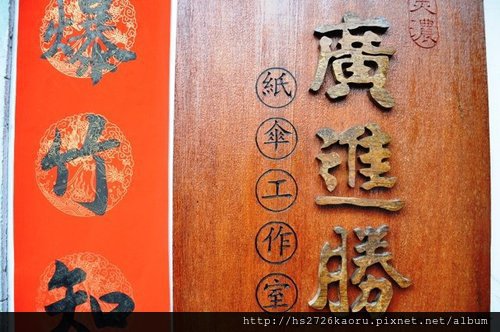 美濃
廣進勝
紙傘工作室
爆竹知
http://hs2726kaoru.pixnet.net/album